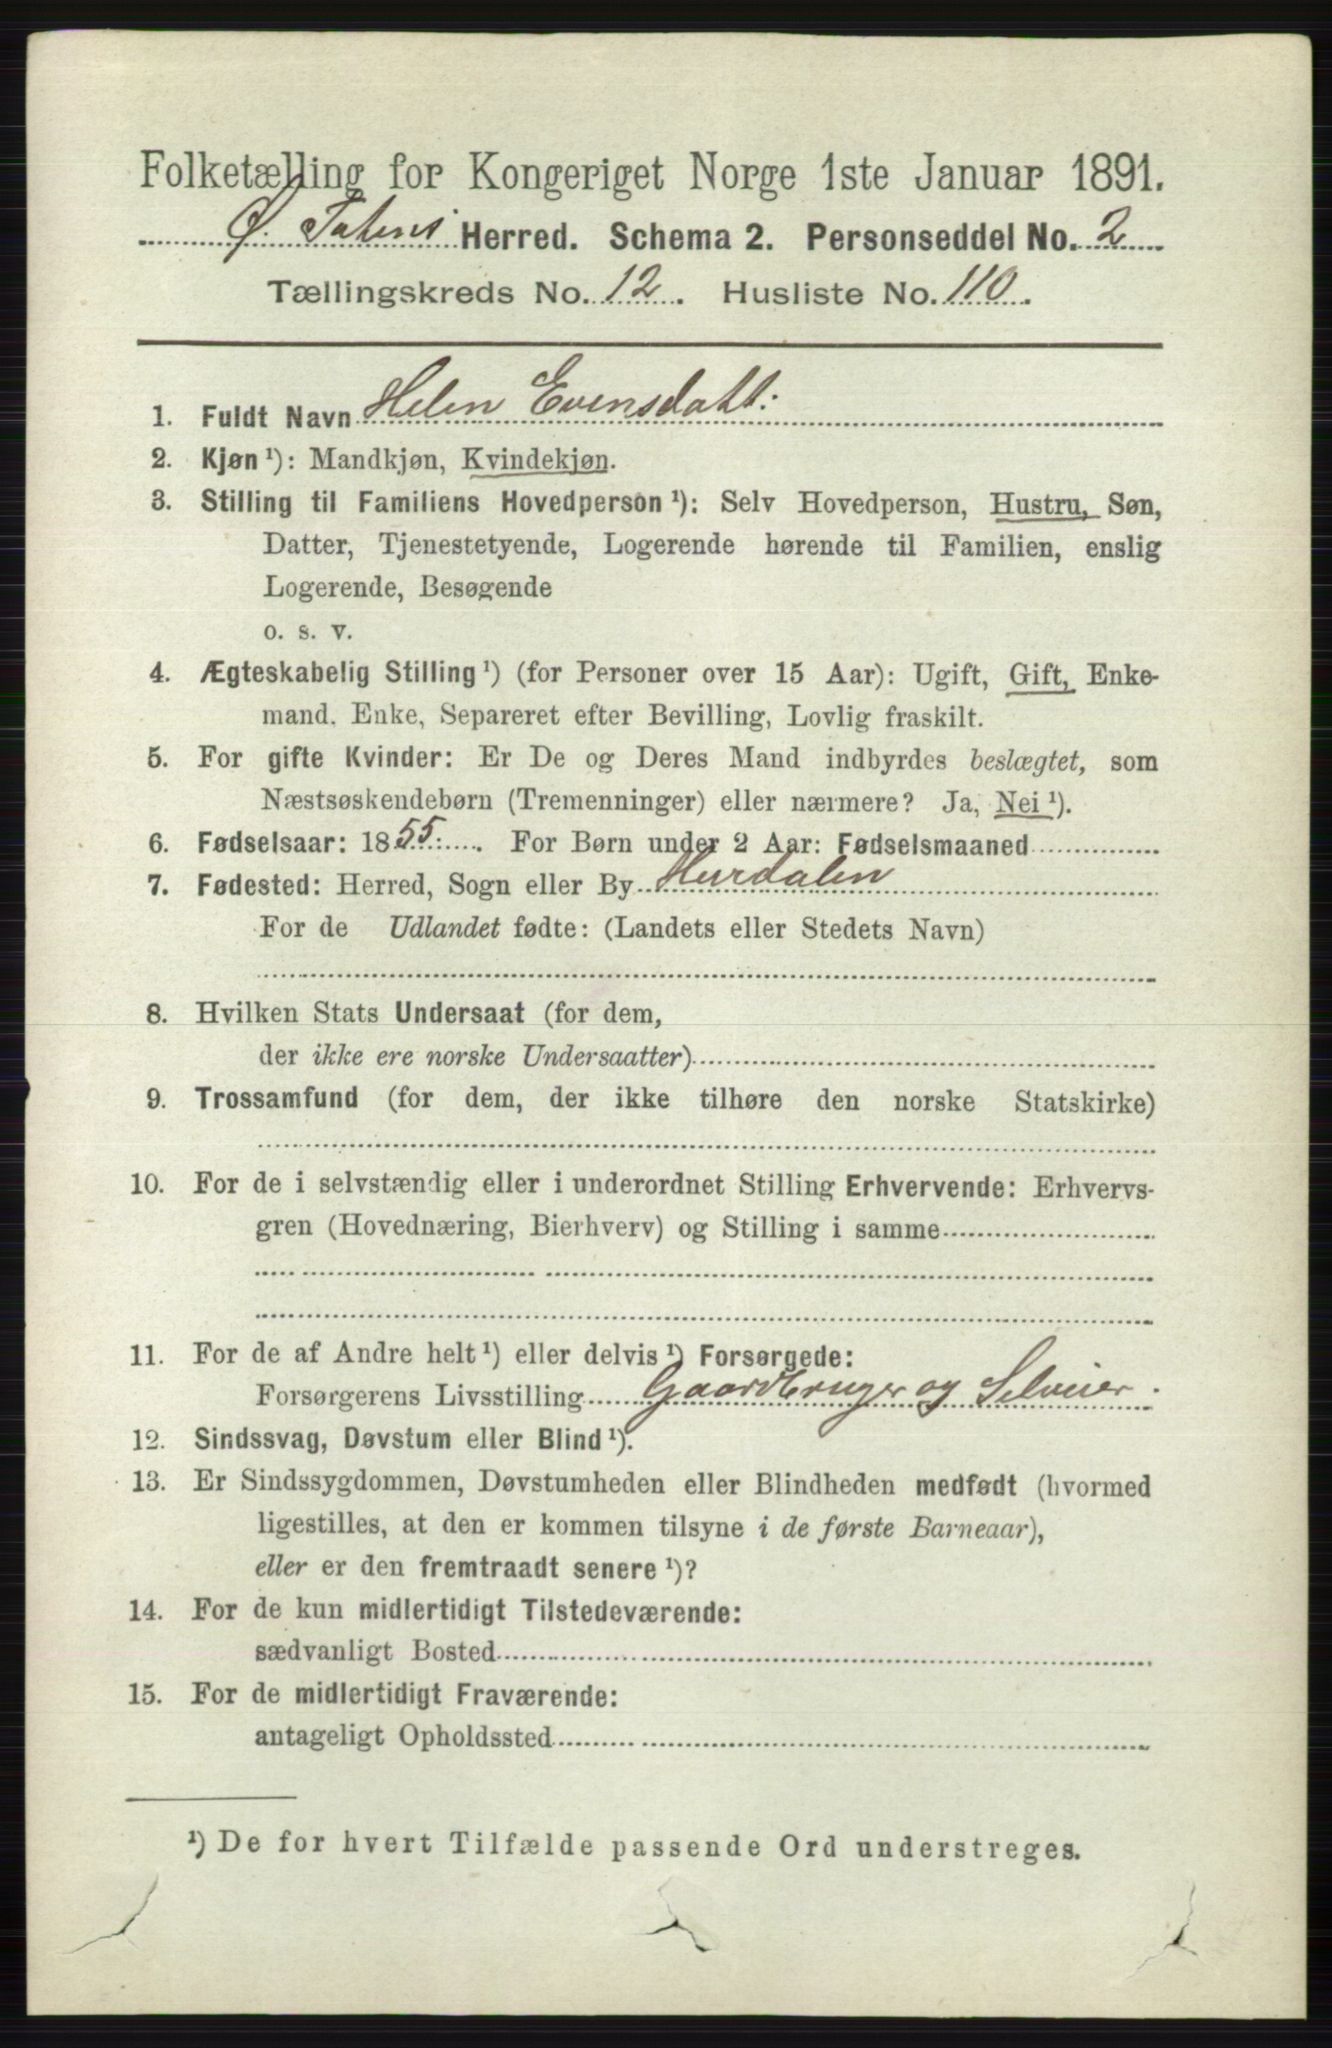 Folketælling for Kongeriget Norge 1ste Januar 1891.
Ø. Totens Herred. Schema 2. Personseddel No. 2
Tællingskreds No. 12. Husliste No. 110.
1. Fuldt Navn Helen Evensdatt:
2. Kjøn ¹): Mandkjøn, Kvindekjøn.
3. Stilling til Familiens Hovedperson ¹): Selv Hovedperson, Hustru, Søn,
Datter, Tjenestetyende, Logerende hørende til Familien, enslig
Logerende, Besøgende
o. s. v.
4. Ægteskabelig Stilling ¹) (for Personer over 15 Aar): Ugift, Gift, Enke-
mand, Enke, Separeret efter Bevilling, Lovlig fraskilt.
5. For gifte Kvinder: Er De og Deres Mand indbyrdes beslægtet, som
Næstsøskendebørn (Tremenninger) eller nærmere? Ja, Nei ¹).
6. Fødselsaar: 1855. For Børn under 2 Aar: Fødselsmaaned
7. Fødested: Herred, Sogn eller By Hurdalen
For de Udlandet fødte: (Landets eller Stedets Navn)
8. Hvilken Stats Undersaat (for dem,
der ikke ere norske Undersaatter)
9. Trossamfund (for dem, der ikke tilhøre den norske Statskirke)
10. For de i selvstændig eller i underordnet Stilling Erhvervende: Erhvervs-
gren (Hovednæring, Bierhverv) og Stilling i samme
11. For de af Andre helt ¹) eller delvis ¹) Forsørgede:
Forsørgerens Livsstilling Gaardbruger og Selveier.
12. Sindssvag, Døvstum eller Blind ¹).
13. Er Sindssygdommen, Døvstumheden eller Blindheden medfødt (hvormed
ligestilles, at den er kommen tilsyne i de første Barneaar),
eller er den fremtraadt senere ¹)?
14. For de kun midlertidigt Tilstedeværende:
sædvanligt Bosted
15. For de midlertidigt Fraværende:
antageligt Opholdssted
¹) De for hvert Tilfælde passende Ord understreges.